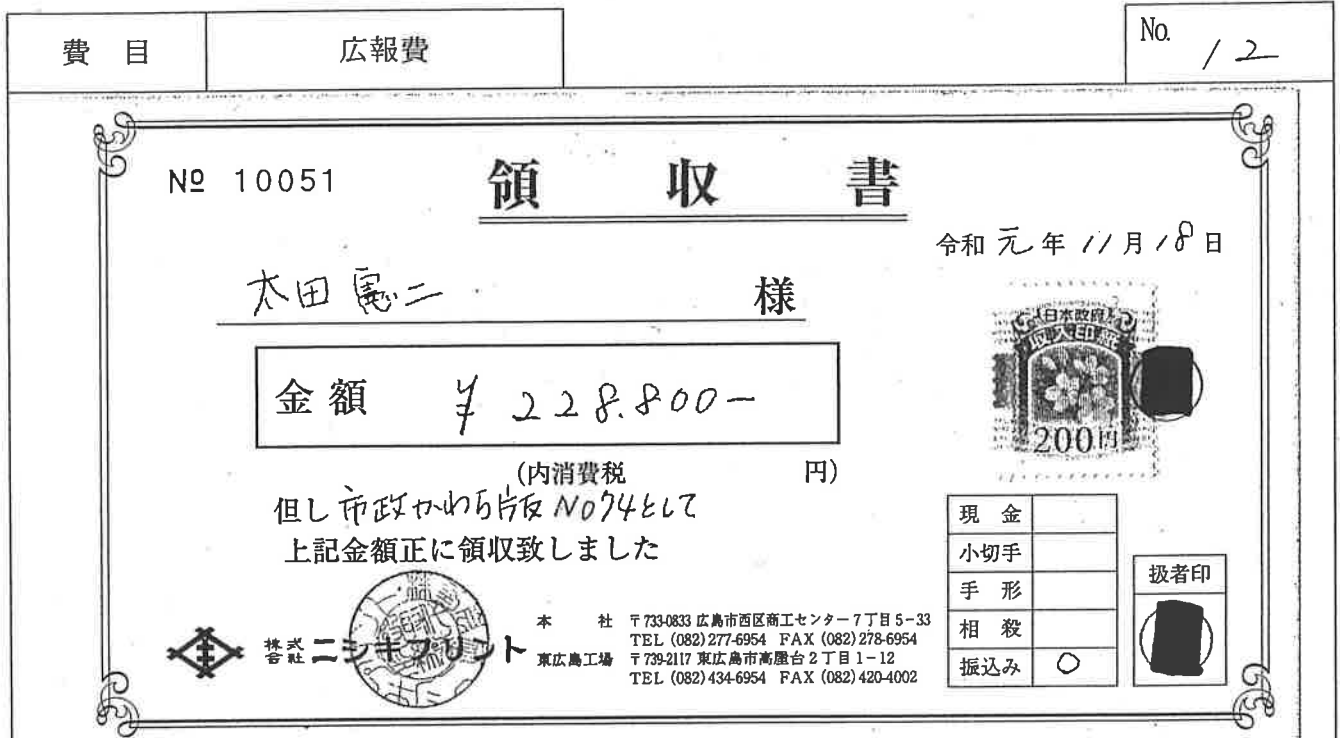 費 目 広報費 No. 12
№ 10051 領 収 書
令和 元 年 11 月 18 日
太田憲二 様
日本政府
収入印紙
200円
金 額 ¥ 228.800-
(内消費税 円)
但し 市政かわら版 No74として
上記金額正に領収致しました
現 金
小切手
手 形
相 殺
振込み ○
扱者印
株式会社 ニシキプリント
本 社 〒733-0833 広島市西区商工センター7丁目5-33
TEL (082) 277-6954 FAX (082) 278-6954
東広島工場 〒739-2117 東広島市高屋台2丁目1-12
TEL (082) 434-6954 FAX (082) 420-4002